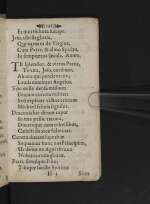 Et mortis hora suscipe.
Jesu, tibi sit gloria,
Qui natus es de Virgine,
Cum Patre, & almo Spiritu,
In sempiterna sæcula. Amen.
TE splendor, & virtus Patris,
Te vita, Jesu, cordium,
Ab ore qui pendent tuo,
Laudamus inter Angelos.
Tibi mille densa millium
Ducum corona militat:
Sed explicat victor crucem
Michaël salutis signifer.
Draconis hic dirum caput
In ima pellit tartara,
Ducemque cum rebellibus,
Cælesti ab arce fulminat.
Contra ducem superbiæ
Sequamur hunc nos Principem,
Ut detur ex Agni throno
Nobis corona gloriæ.
Patri, simulque Filio,
Tibique Sancte Spiritus
Sicut